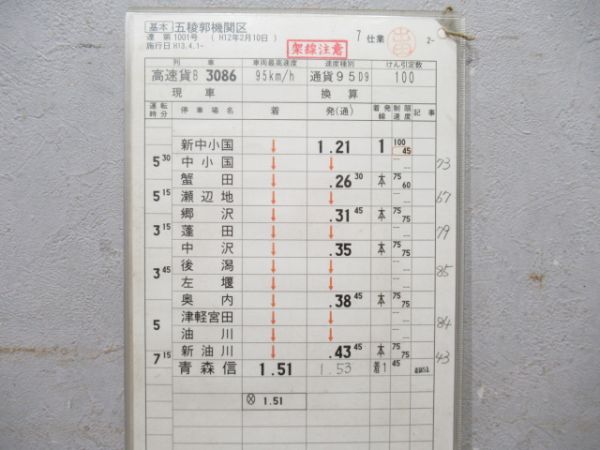 基本 五稜郭機関区
達 第1001号 ( H12年2月10日 )
施行日 H13.4.1~
架線注意
7 仕業
2-
列車 車両最高速度 速度種別 けん引定数
高速貨B 3086 95km/h 通貨95D9 100
現車 換算
運転時分 停車場名 着 発(通) 着発線 制限速度 記事
新中小国 ↓ 1.21 1 100 45
5 30 中小国 ↓ ↓ 73
蟹田 ↓ .26 30 本 75 60
5 15 瀬辺地 ↓ ↓ 67
郷沢 ↓ .31 45 本 75 75
3 15 蓬田 ↓ ↓ 79
中沢 ↓ .35 本 75 75
3 45 後潟 ↓ ↓ 85
左堰 ↓ ↓
奥内 ↓ .38 45 本 75 75
5 津軽宮田 ↓ ↓ 84
油川 ↓ ↓
7 15 新油川 ↓ .43 45 本 75 75 43
青森信 1.51 1.53 着1 45
⊗ 1.51